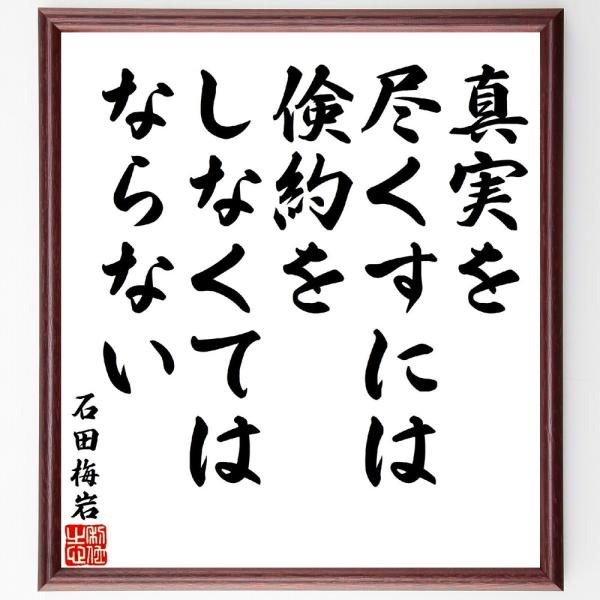 真実を
尽くすには
倹約を
しなくては
ならない
石田梅岩